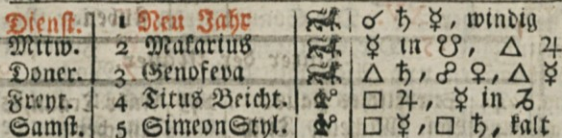 Dienst. 1 Neu Jahr ☌ ♄ ☿, windig
Mitw. 2 Makarius ☿ in ☋, △ ♃
Doner. 3 Genofeva △ ♄, ☍ ♀, △ ☿
Freyt. 4 Titus Beicht. □ ♃, ☿ in ♑
Samst. 5 Simeon Styl. □ ☿, □ ♄, kalt